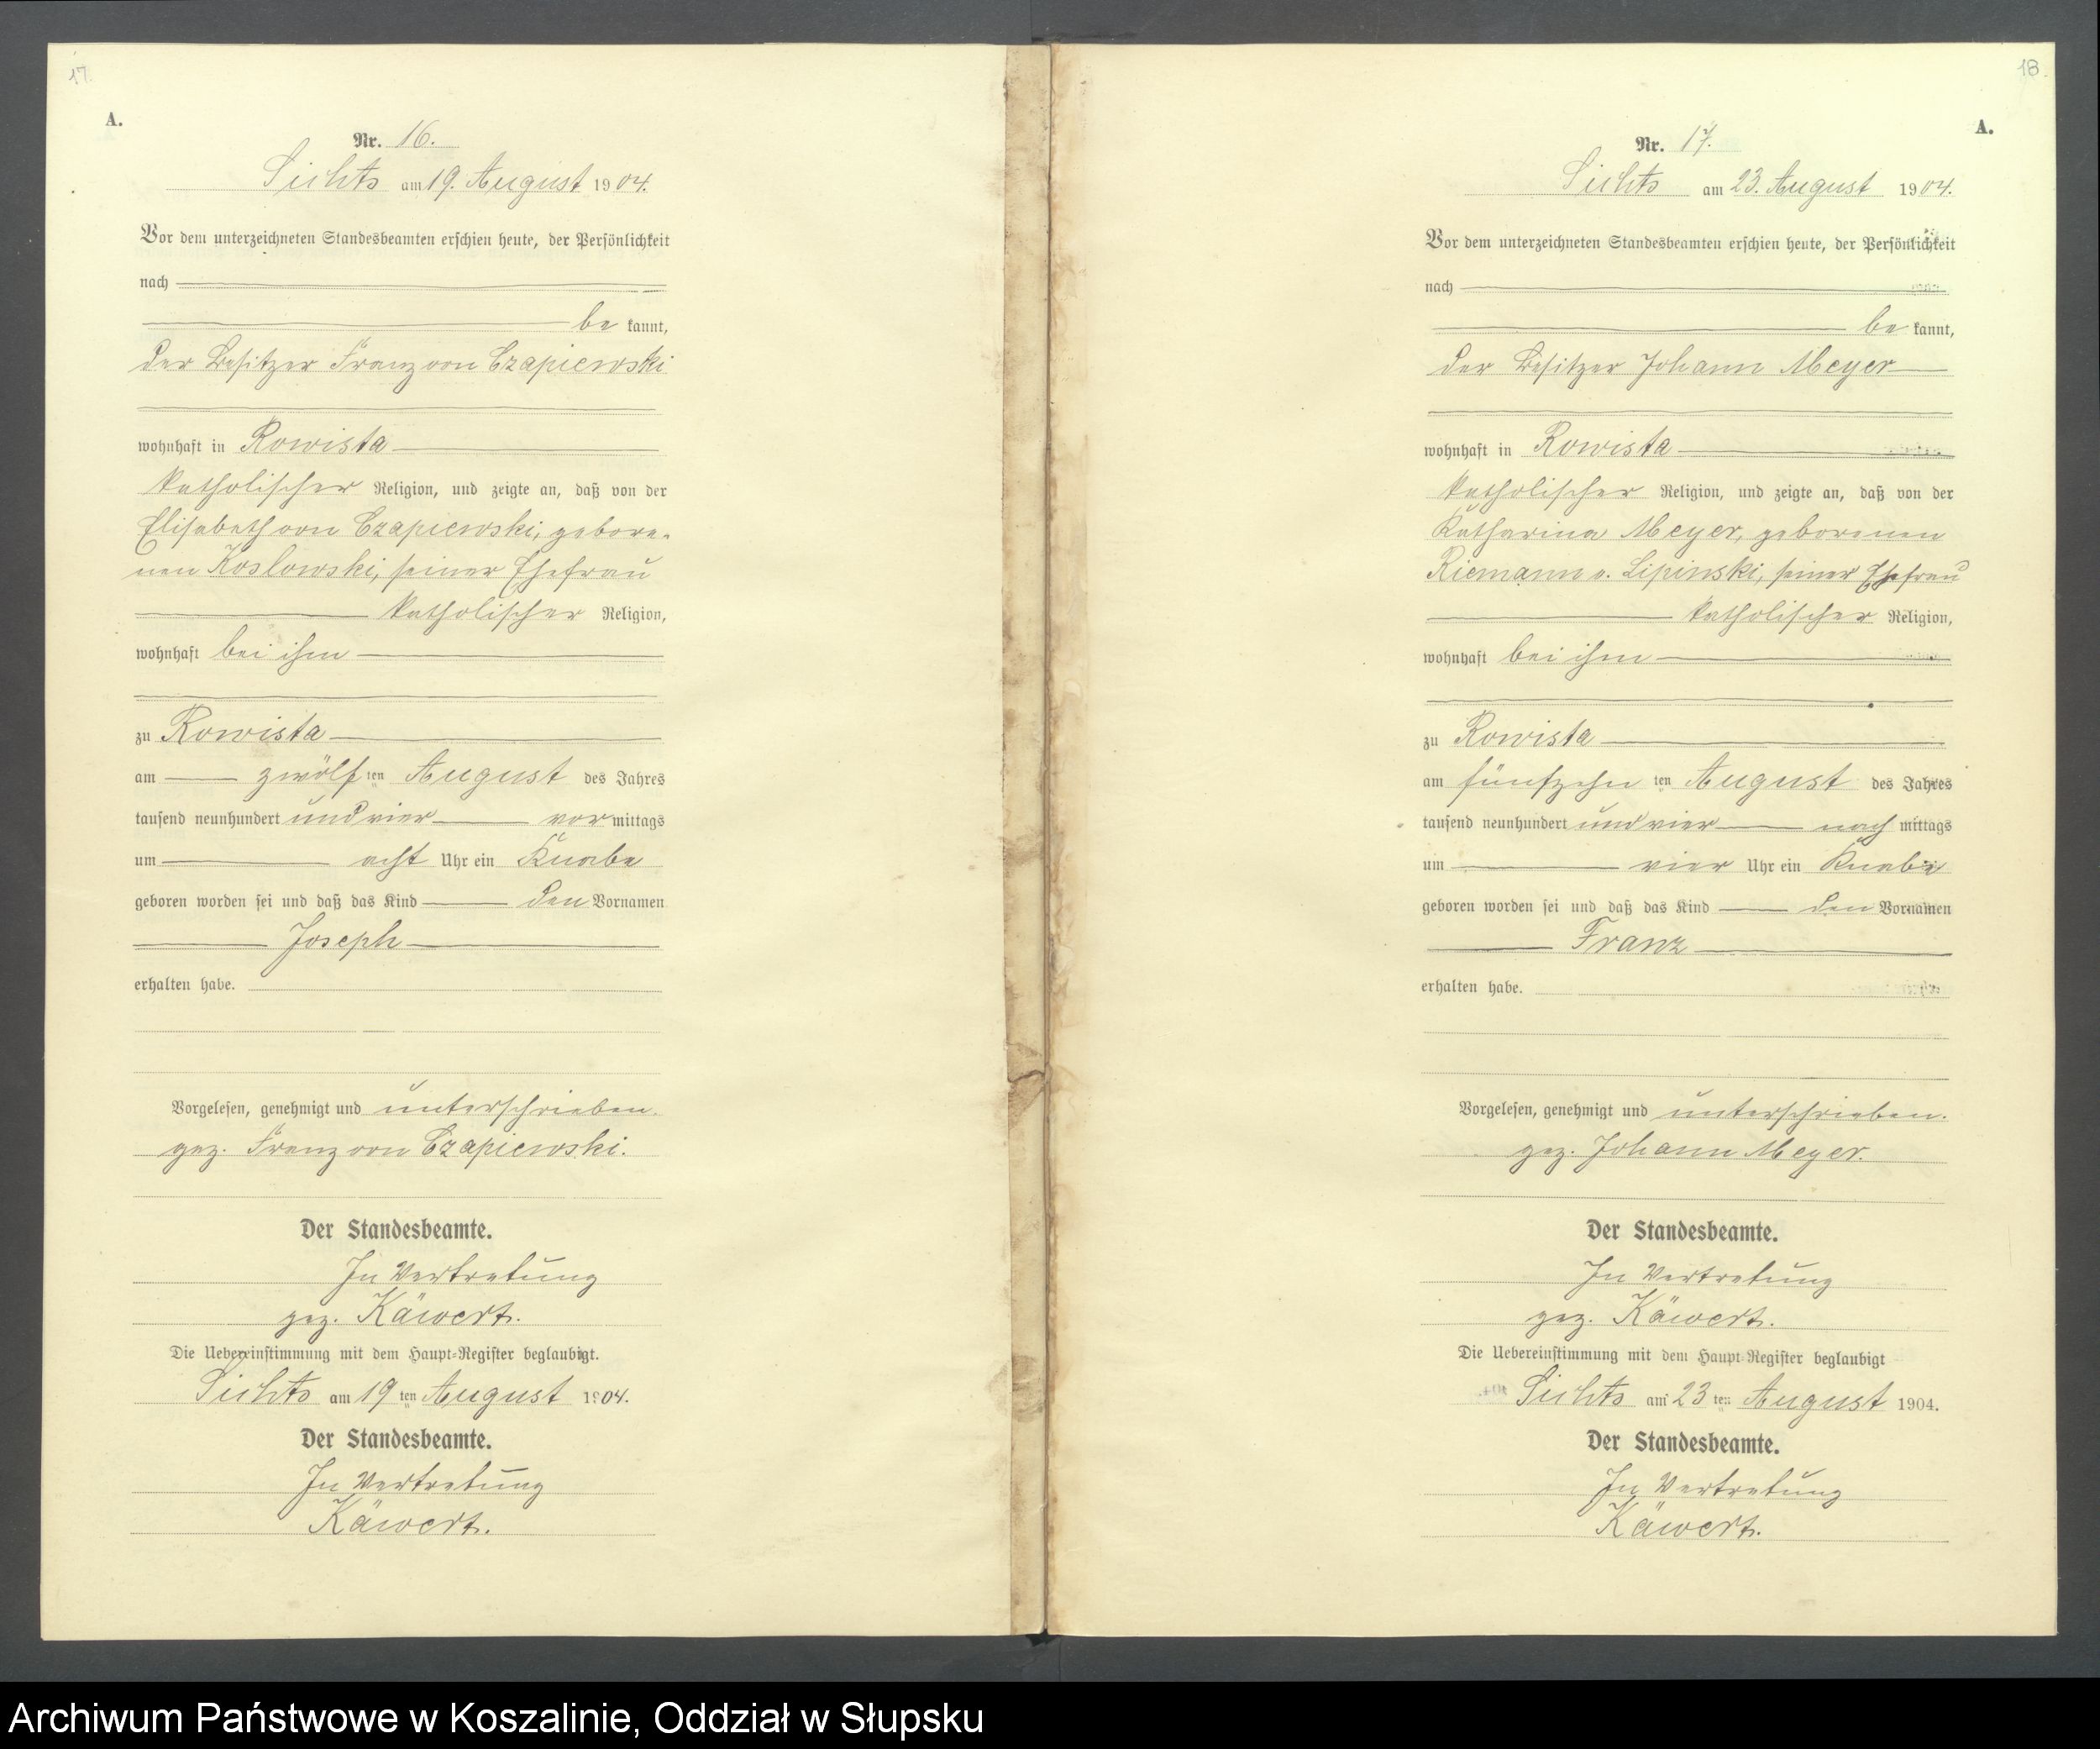 17.
A.
Nr. 16.
Sichts am 19. August 1904.
Vor dem unterzeichneten Standesbeamten erschien heute, der Persönlichkeit
nach
be kannt,
der Besitzer Franz von Czapiewski
wohnhaft in Rowista
katholischer Religion, und zeigte an, daß von der
Elisabeth von Czapiewski, gebore-
nen Koslowski, seiner Ehefrau
katholischer Religion,
wohnhaft bei ihm
zu Rowista
am zwölf ten August des Jahres
tausend neunhundert und vier vor mittags
um acht Uhr ein Knabe
geboren worden sei und daß das Kind den Vornamen
Joseph
erhalten habe.
Vorgelesen, genehmigt und unterschrieben.
gez. Franz von Czapiewski.
Der Standesbeamte.
In Vertretung
gez. Käwert.
Die Uebereinstimmung mit dem Haupt-Register beglaubigt.
Sichts am 19 ten August 1904.
Der Standesbeamte.
In Vertretung
Käwert.
18.
A.
Nr. 17.
Sichts am 23. August 1904.
Vor dem unterzeichneten Standesbeamten erschien heute, der Persönlichkeit
nach
be kannt,
der Besitzer Johann Meyer
wohnhaft in Rowista
katholischer Religion, und zeigte an, daß von der
Katharina Meyer, geborenen
Riemann v. Lipinski, seiner Ehefrau
katholischer Religion,
wohnhaft bei ihm
zu Rowista
am fünfzehn ten August des Jahres
tausend neunhundert und vier nach mittags
um vier Uhr ein Knabe
geboren worden sei und daß das Kind den Vornamen
Franz
erhalten habe.
Vorgelesen, genehmigt und unterschrieben.
gez. Johann Meyer.
Der Standesbeamte.
In Vertretung
gez. Käwert.
Die Uebereinstimmung mit dem Haupt-Register beglaubigt
Sichts am 23 ten August 1904.
Der Standesbeamte.
In Vertretung
Käwert.
Archiwum Państwowe w Koszalinie, Oddział w Słupsku